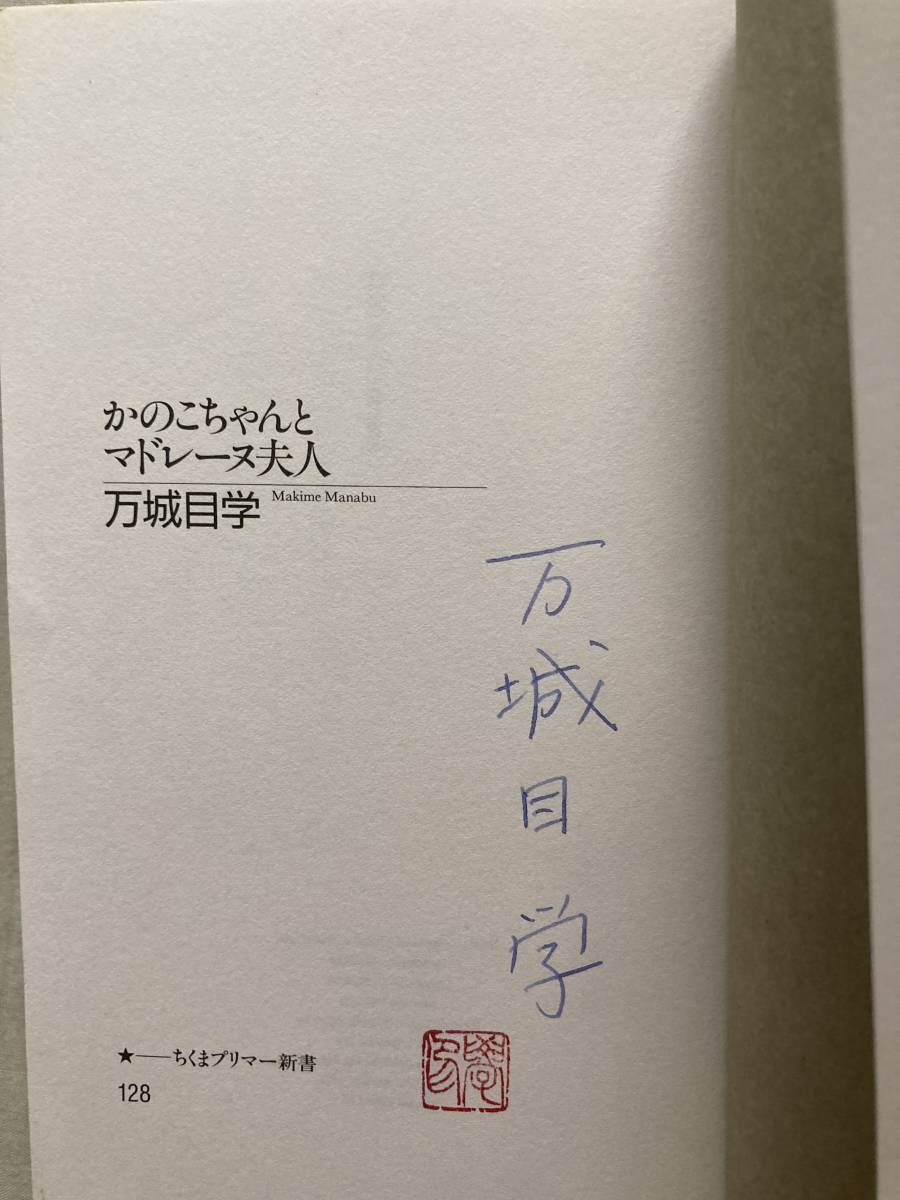 かのこちゃんと
マドレーヌ夫人
万城目学 Makime Manabu
万城目学
★──ちくまプリマー新書
128
學印